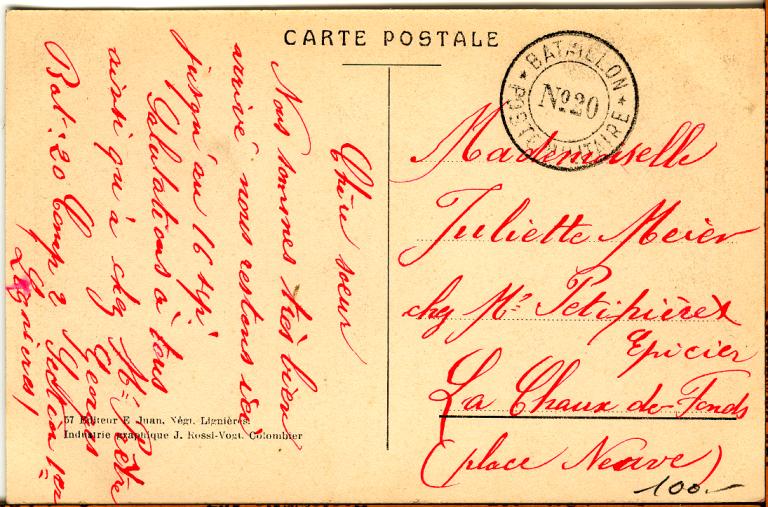 CARTE POSTALE
BATAILLON
No 20
POSTE MILITAIRE
Chère soeur
Nous sommes très bien
arrivé nous restons ici
jusqu'au 16 sep.
Salutations à tous
ainsi qu'à chez Mr Pêtre
Georges
Bat: 20 Comp 2 Section 1er
Lignières
Mademoiselle
Juliette Meier
chez Mr Petitpièrre
Epicier
La Chaux de-Fonds
(place Neuve)
100.-
57 Editeur E Juan, Négt. Lignières.
Industrie graphique J. Rossi-Vogt. Colombier